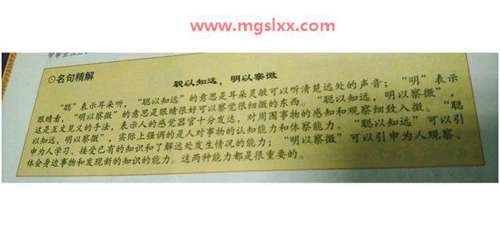 www.mgslxx.com
⊙名句精解
聪以知远，明以察微
“聪”表示耳朵听，“聪以知远”的意思是耳朵灵敏可以听清楚远处的声音；“明”表示
眼睛看，“明以察微”的意思是眼睛很好可以察觉很细微的东西。“聪以知远，明以察微”，
这是互文见义的手法，表示人的感觉器官十分发达，对周围事物的感知和观察细致入微。“聪
以知远，明以察微”，实际上强调的是人对事物的认知能力和体察能力。“聪以知远”可以引
申为人学习、接受已有的知识和了解远处发生情况的能力；“明以察微”可以引申为人观察、
体会身边事物和发现新的知识的能力。这两种能力都是很重要的。